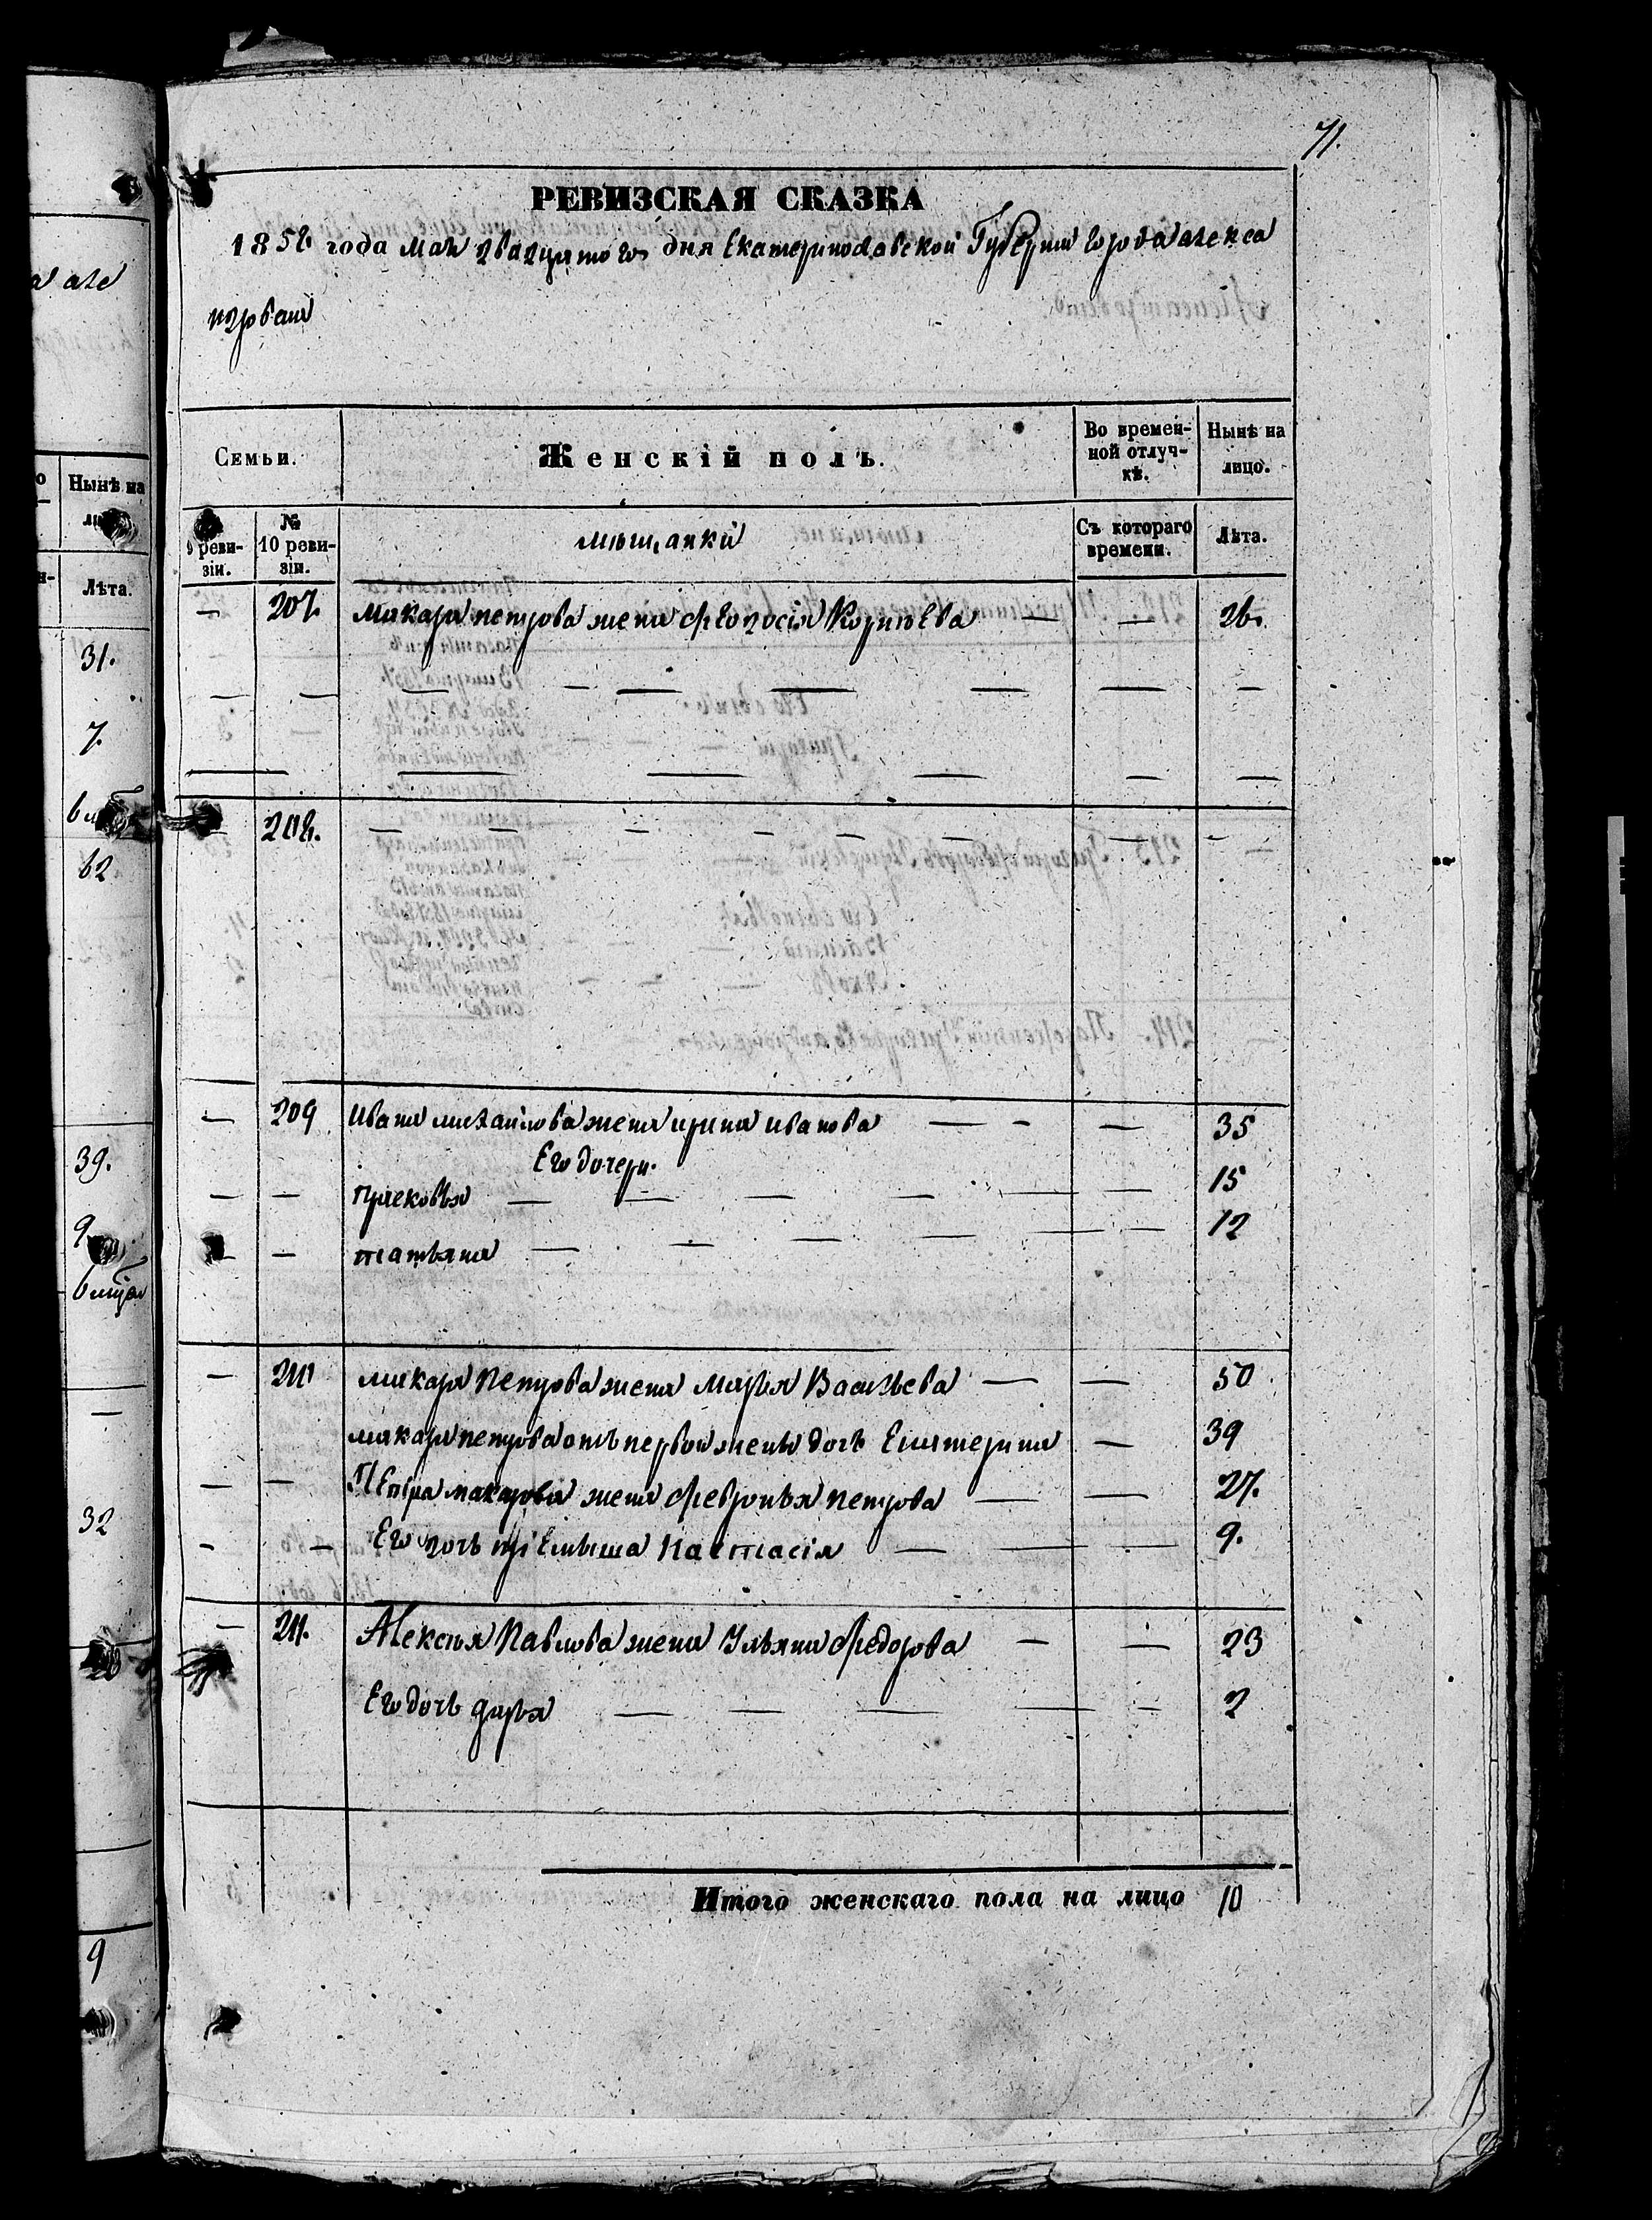 71.
РЕВИЗСКАЯ СКАЗКА
1858 года мая двадцатого дня Екатеринославской Губерніи города алекса
ндровска
Семьи.
Женскій полъ.
Во времен-
ной отлуч-
кѣ.
Нынѣ на
лицо.
ревизіи.
№
10 реви-
зіи.
мѣщанки
Съ котораго
времени.
Лѣта.
— 207. макара петрова жена феодосія Корнѣева — — 26.
208. — — — — — — — —
— 209 Ивана михайлова жена ирина иванова — - — 35
Его дочери.
— — Прасковья — — — — — — 15
— — татьяна — — — — — — 12
— 210 макара Петрова жена Марья Васильева — — 50
макара петрова отъ первой жены дочь Екатерина — 39
— — Петра макарова жена Февронья петрова — — 27.
- — Его дочь пріемыша Настасія — — — 9.
— 211. Алексѣя Павлова жена Ульяна Федорова — — 23
Его дочь дарья — — — — — 2
Итого женскаго пола на лицо 10
а але
Нынѣ на
Лѣта.
31.
7.
62
39.
9
32
9